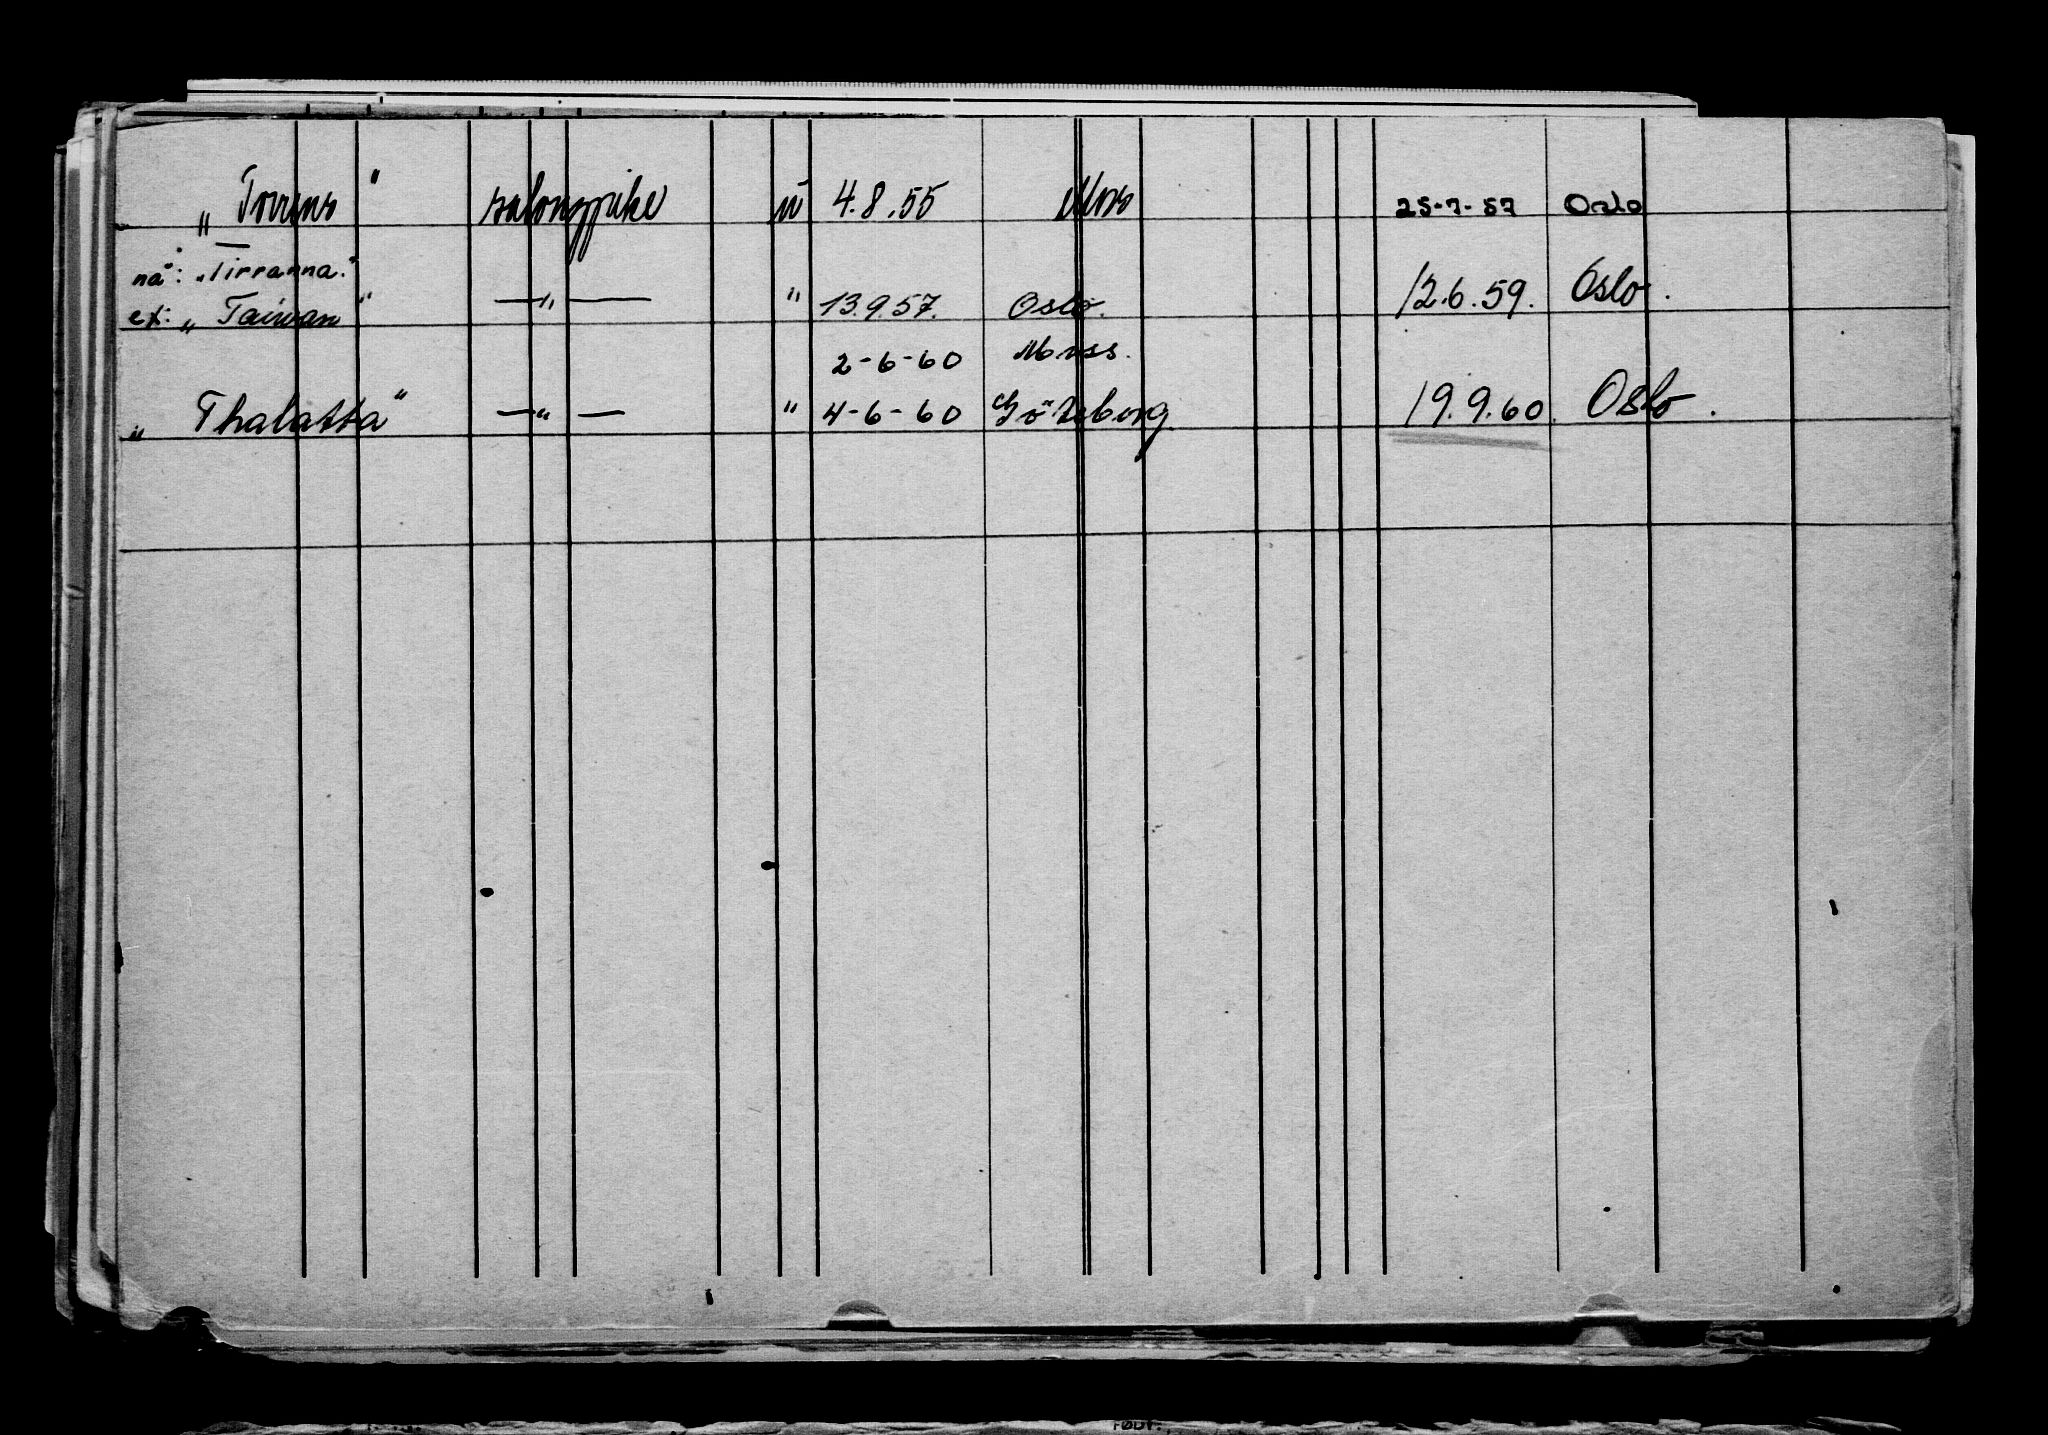 „Torrens" salongpike u 4.8.55 Moss 25-7-57 Oslo
nå: „Tirranna."
ex: „Taiwan" —„— " 13.9.57. Oslo. 12.6.59. Oslo.
2-6-60 Moss.
„Thalatta" —„— " 4-6-60 Göteborg 19.9.60. Oslo.